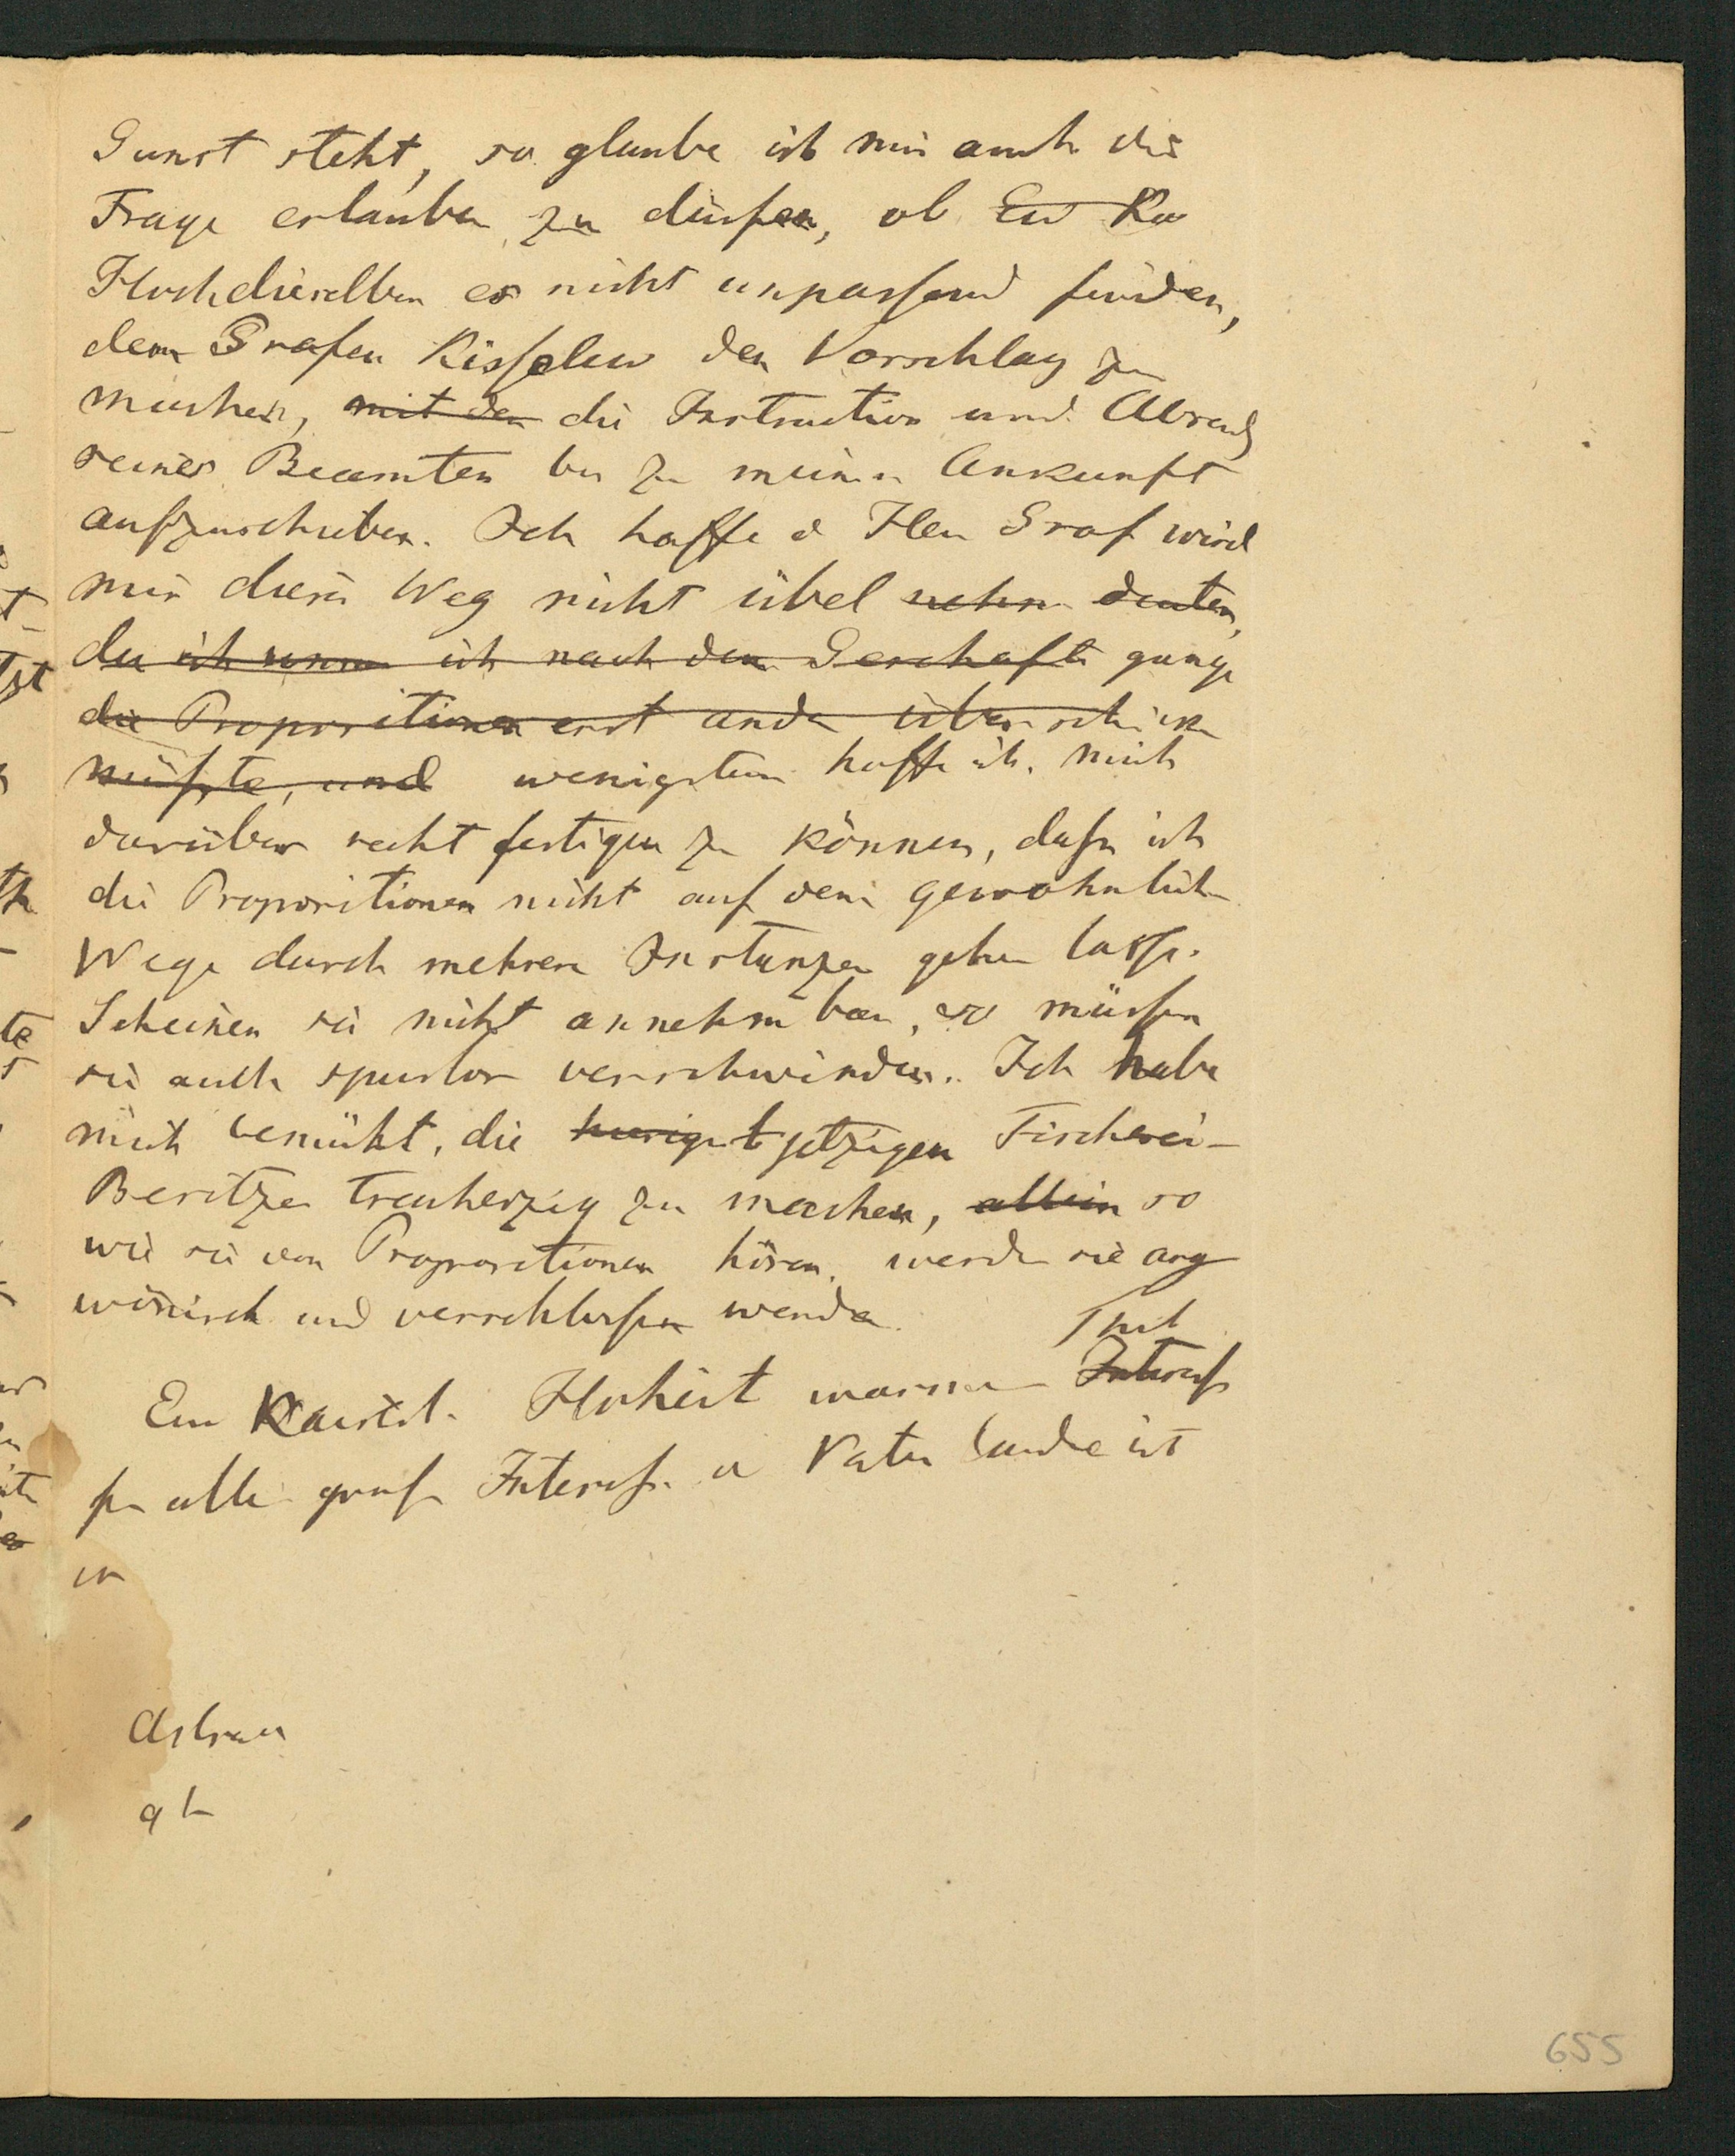 Gunst steht, so glaube ich mir auch die
Frage erlauben zu dürfen, ob Ew Ka
Hochdieselben es nicht unpassend finden,
dem Grafen Kisselew den Vorschlag zu
machen, mit der die Instruction und Absend
seines Beamten bis zu meiner Ankunft
aufzuschieben. Ich hoffe d Herr Graf wird
mir diesen Weg nicht übel nehm deuten,
da ich wenn ich nach dem Geschäfts gange
die Propositionen erst an de überschicken
müsste, und wenigstens hoffe ich, mich
darüber recht fertigen zu können, dass ich
die Propositionen nicht auf dem gewohnlich
Wege durch mehrere Instanzen gehen lasse.
Scheinen sie nicht annehmbar, so müssen
sie auch spurlos verschwinden. Ich habe
mich bemüht, die jetzigen Fischerei-
Besitzer treuherzig zu machen, allein so
wie sie von Propositionen hören, werden sie arg
wönisch und verschlossen werden.
Ew Kaiserl. Hoheit warmes Interess
für alle grosse Interess. d Vaterlandes ist
655